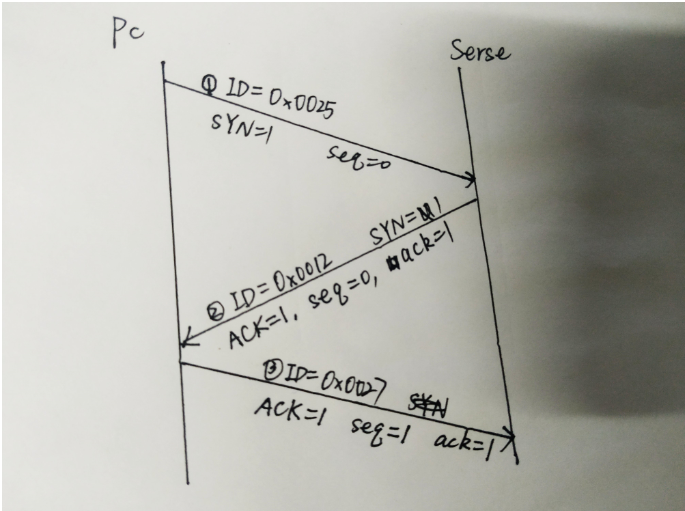 Pc
Serse
① ID=0x0025
SYN=1
seq=0
SYN=1
② ID=0x0012
ACK=1, seq=0, ack=1
③ ID=0x0027
ACK=1 seq=1 ack=1